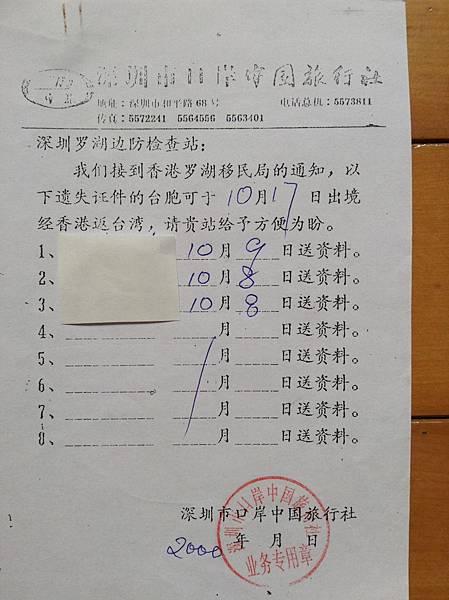 深圳市口岸中国旅行社
地址：深圳市和平路68号 电话总机：5573811
传真：5572241 5564556 5563401
深圳罗湖边防检查站：
我们接到香港罗湖移民局的通知，以
下遗失证件的台胞可于10月17日出境
经香港返台湾，请贵站给予方便为盼。
1、 10月9日送资料。
2、 10月8日送资料。
3、 10月8日送资料。
4、 月 日送资料。
5、 月 日送资料。
6、 月 日送资料。
7、 月 日送资料。
8、 月 日送资料。
深圳市口岸中国旅行社
2000年 月 日
深圳市口岸中国旅行社
业务专用章